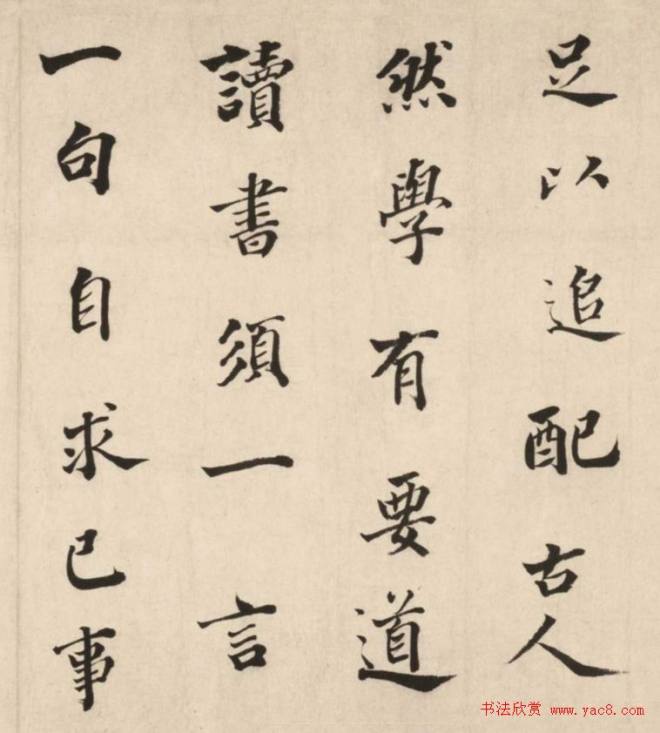 足以追配古人
然學有要道
讀書須一言
一句自求己事
书法欣赏 www.yac8.com